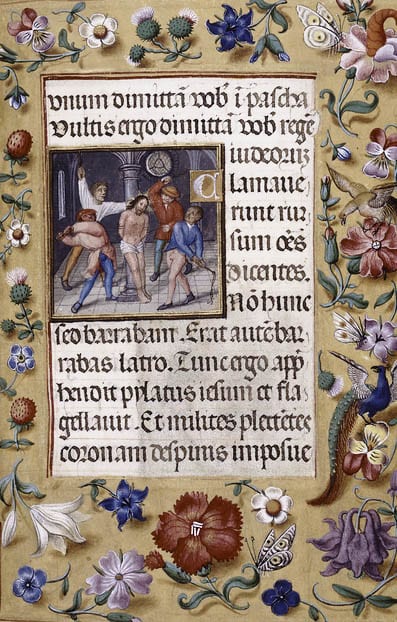 vnum dimittā vob̄ ī pascha
Vultis ergo dimittā vob̄ regē
iudeoruꝫ
Clamaue
runt rur
sum oēs
dicentes.
Nō hunc
sed barraban. Erat autē bar
rabas latro. Tunc ergo app̄
hendit pylatus iesum et fla
gellauit. Et milites plectētes
coronam de spinis imposue